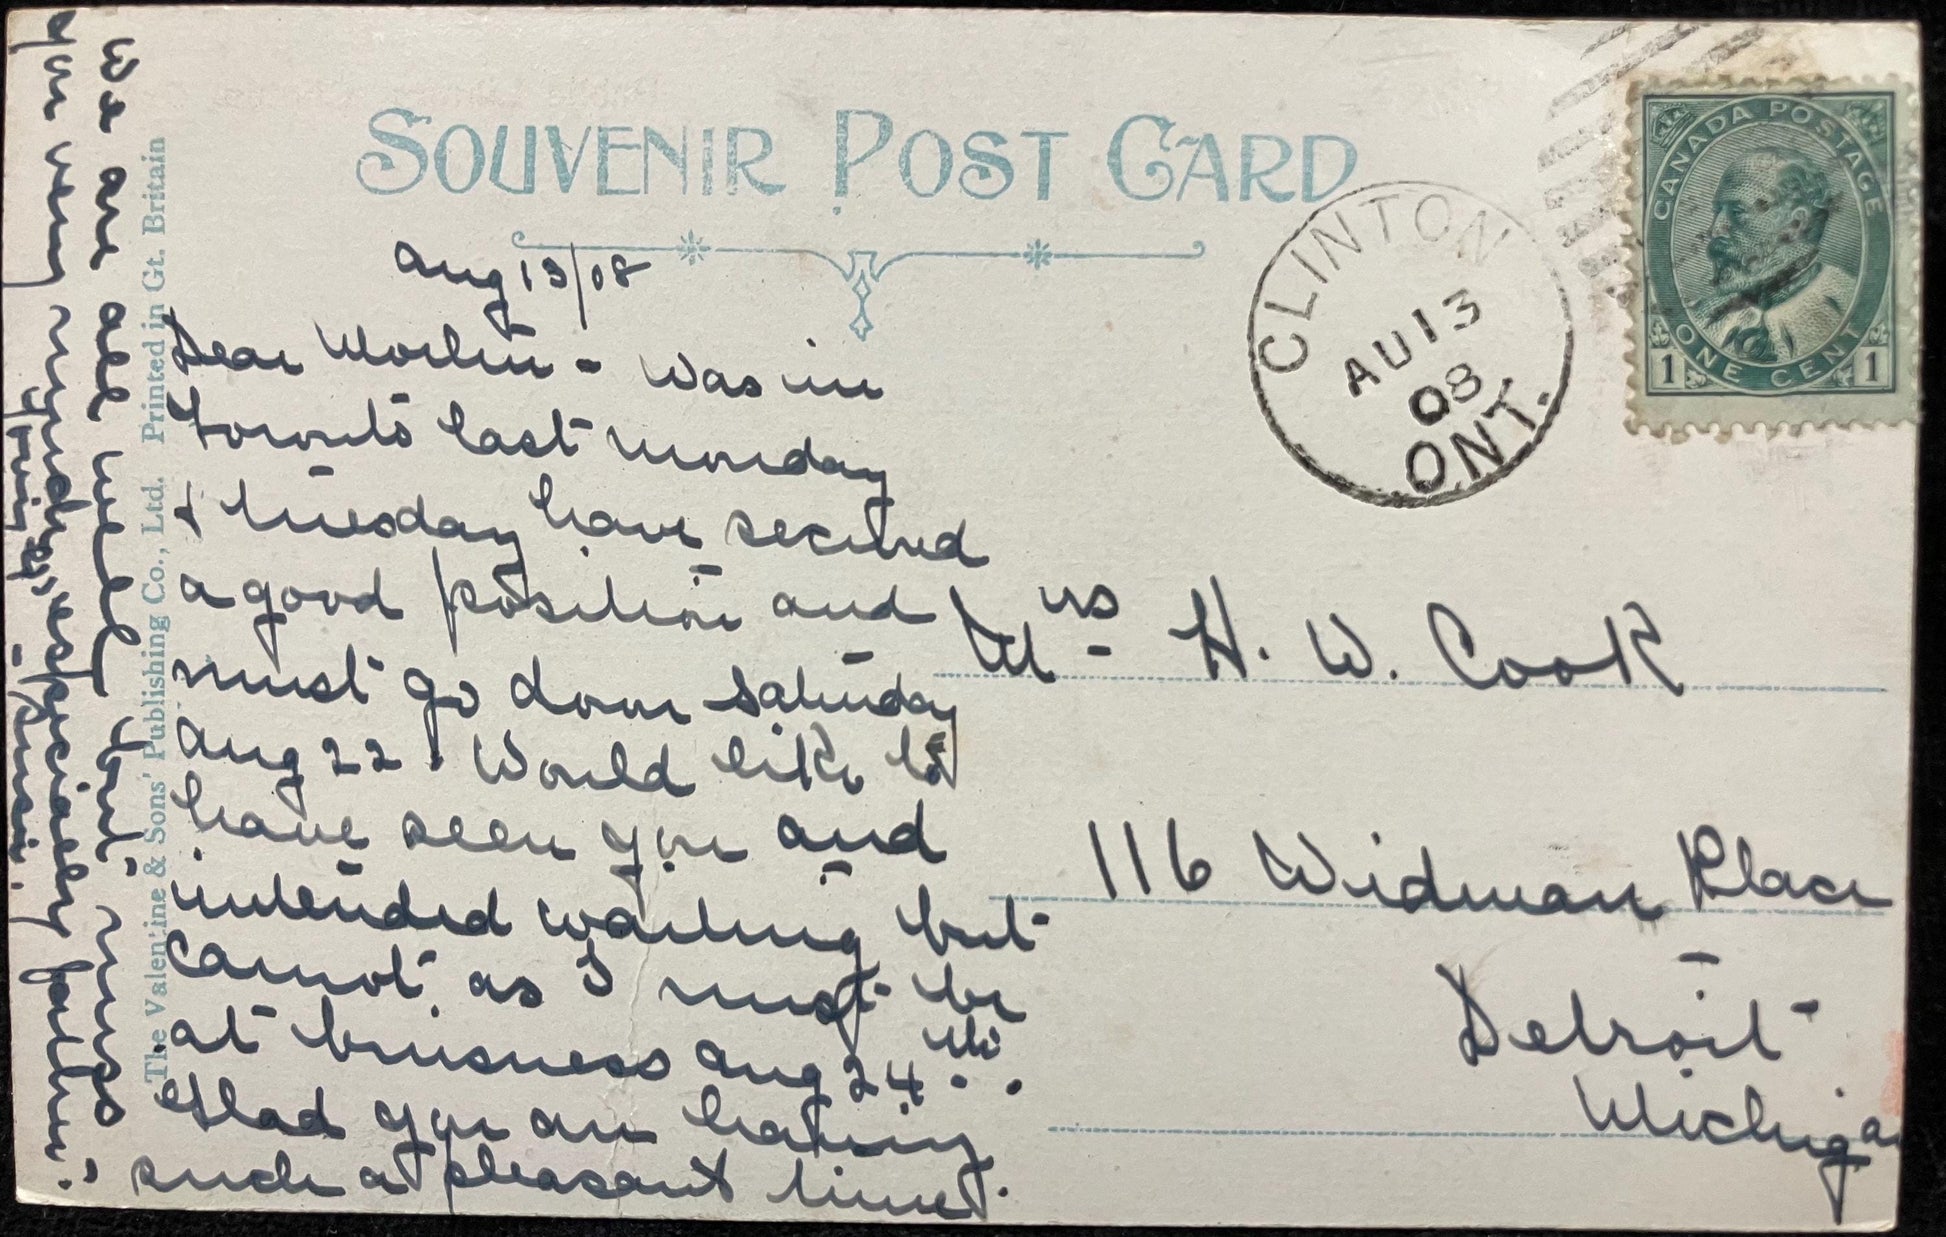 SOUVENIR POST CARD
CANADA POSTAGE
1 ONE CENT 1
CLINTON
AU 13
08
ONT.
Aug 13/08
Dear Mother - Was in
Toronto last Monday
& Tuesday have secured
a good position and
must go down Saturday
Aug 22. Would like to
have seen you and
intended waiting but
cannot as I must be
at buisness Aug 24th.
Glad you are having
such a pleasant time.
We are all well but miss
you very much, especially father.
Susie.
Mrs H. W. Cook
116 Widman Place
Detroit
Michigan
The Valentine & Sons' Publishing Co., Ltd. Printed in Gt. Britain